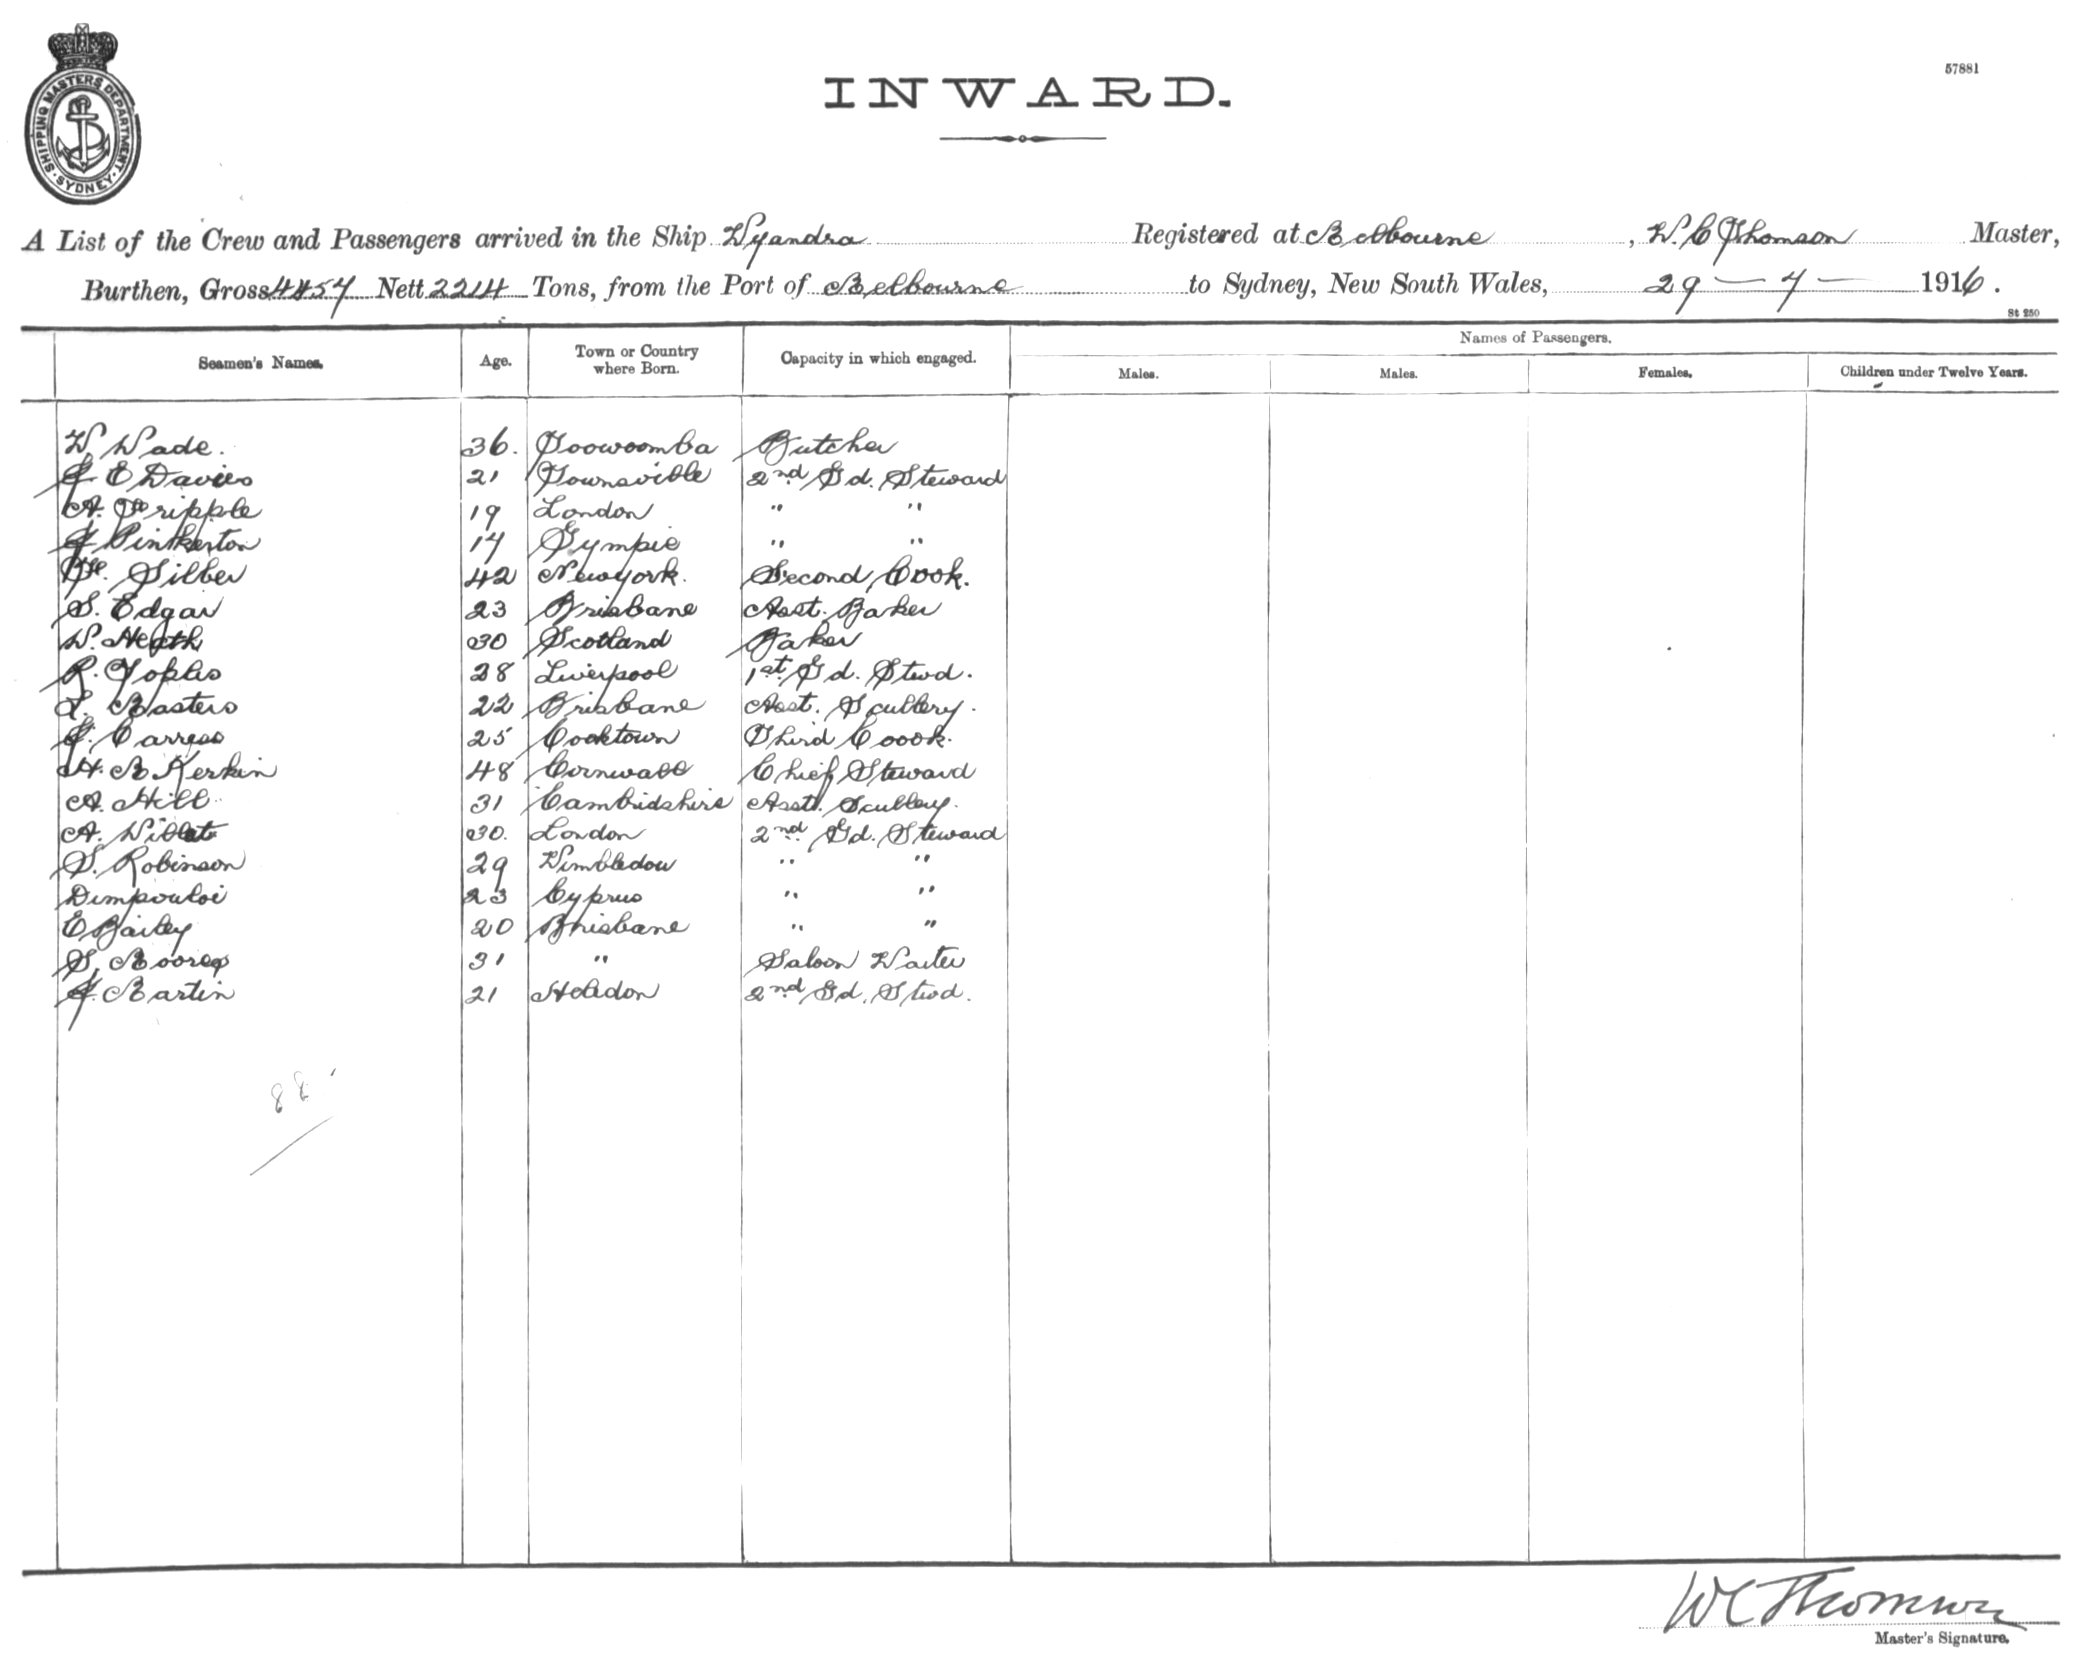 SHIPPING MASTERS DEPARTMENT. SYDNEY.
57881
INWARD.
A List of the Crew and Passengers arrived in the Ship Wyandra Registered at Melbourne, W. C Thomson Master,
Burthen, Gross 4457 Nett 2214 Tons, from the Port of Melbourne to Sydney, New South Wales, 29 – 7 – 1916.
St 250
Names of Passengers.
Seamen's Names. Age. Town or Country where Born. Capacity in which engaged. Males. Males. Females. Children under Twelve Years.
W. Wade. 36. Toowoomba Butcher
J E Davies 21 Townsville 2nd Gd. Steward
A. Tripple 19 London " "
J Pinkerton 17 Gympie " "
Silber 42 Newyork. Second Cook.
S. Edgar 23 Brisbane Asst. Baker
W. Heath 30 Scotland Baker
R. Toplis 28 Liverpool 1st Gd. Stwd.
L. Masters 22 Brisbane Asst. Scullery.
J. Carress 25 Cooktown Third Coook.
H. M Kerkin 48 Cornwall Chief Steward
A. Hill 31 Cambridshire Asst. Scullery.
A. Willet 30. London 2nd Gd. Steward
S. Robinson 29 Wimbledon " "
Dimpouloi 23 Cyprus " "
E Bailey 20 Brisbane " "
S. Moores 31 " Saloon Waiter
J. Martin 21 Helidon 2nd Gd. Stwd.
88
W C Thomson
Master's Signature.